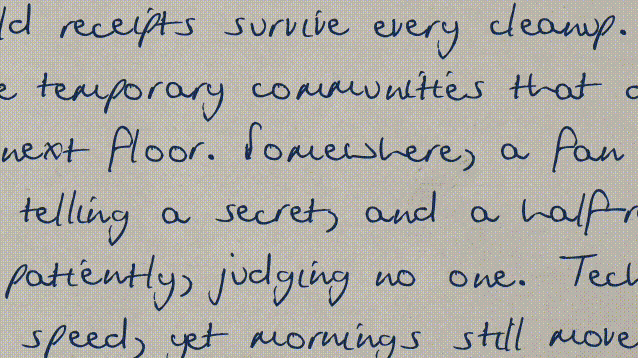 receipts survive every cleanup.
temporary communities that
next floor. Somewhere, a fan
telling a secret, and a
patiently, judging no one.
speed, yet mornings still move